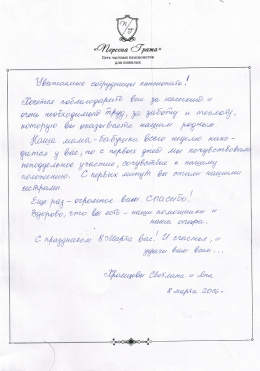 «Персона Гранта»
Сеть частных пансионатов
для пожилых
Уважаемые сотрудницы пансионата!
Хотим поблагодарить вас за нелегкий и
очень необходимый труд, за заботу и теплоту,
которую вы оказываете нашим родным.
Наша мама-бабушка всего неделю нахо-
дится у вас, но с первых дней мы почувствовали
неподдельное участие, сочувствие к нашему
положению. С первых минут вы стали нашими
сестрами.
Еще раз - огромное вам Спасибо!
Здорово, что вы есть - наши помощники и
наша опора.
С праздником 8 Марта вас! И счастья, и
удачи вам всем...
Светлана и
8 марта 2016г.